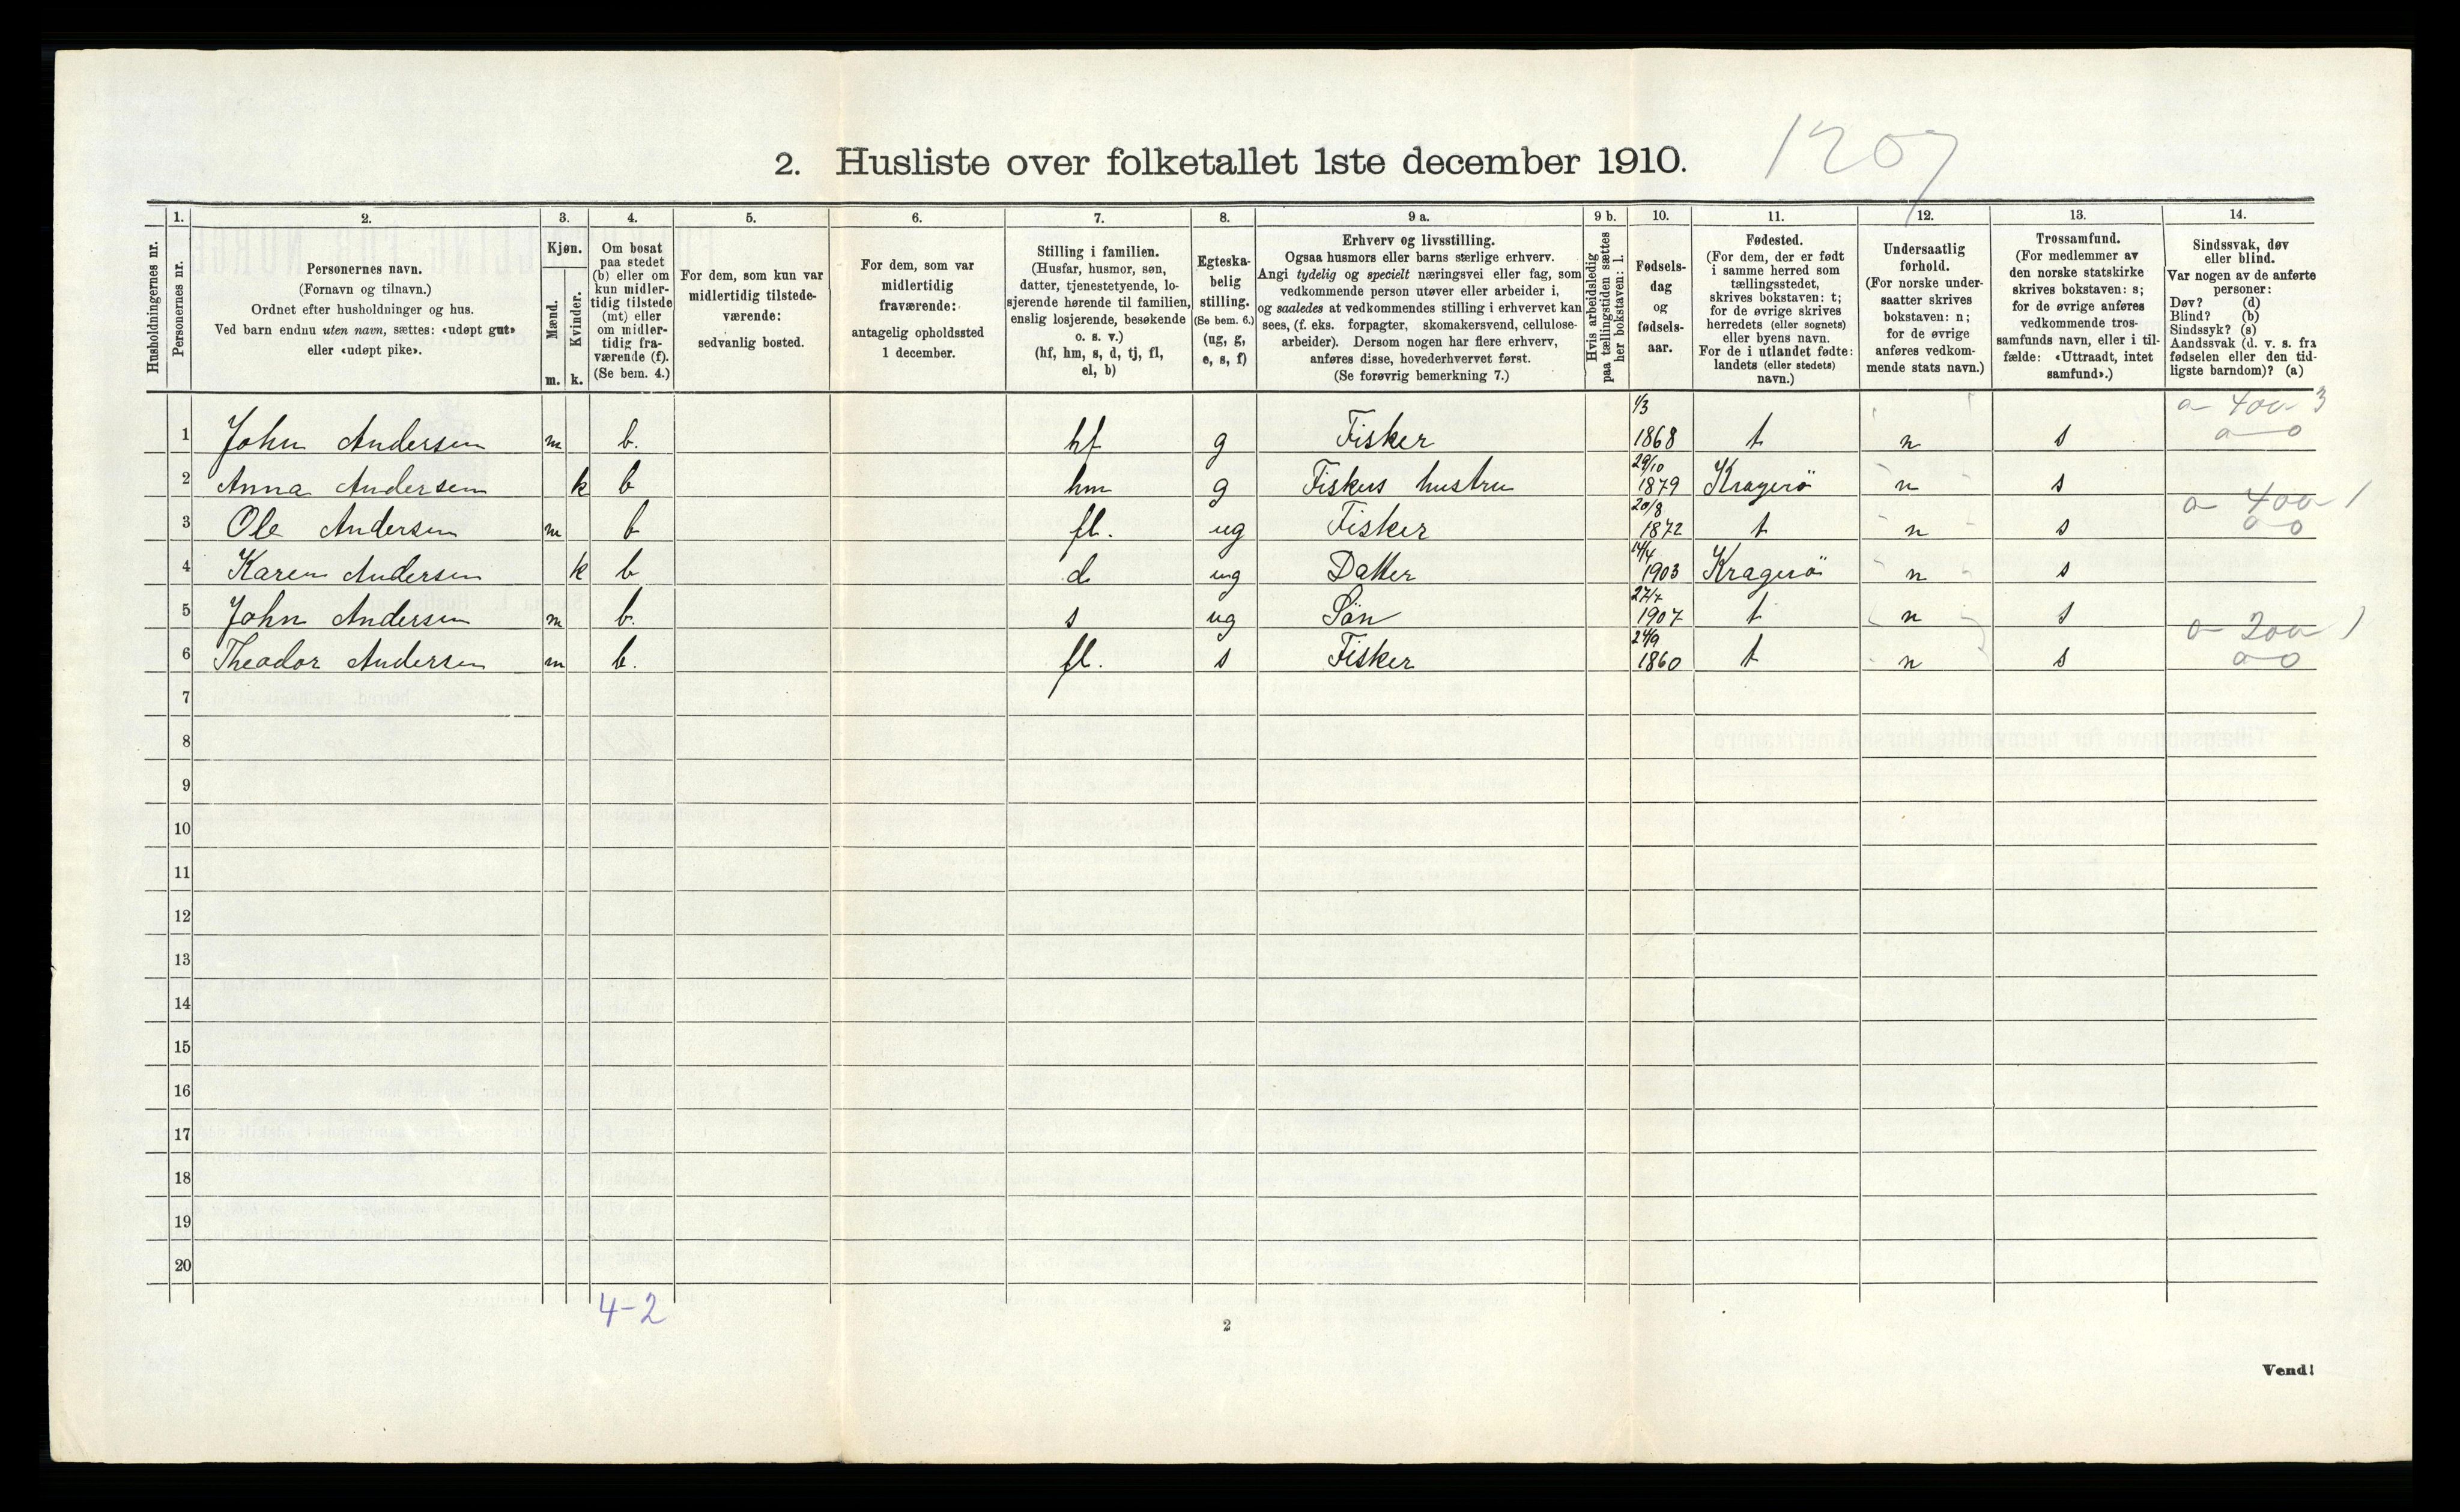 2. Husliste over folketallet 1ste december 1910.
1207
Husholdningernes nr.
1.
Personernes nr.
2.
Personernes navn.
(Fornavn og tilnavn.)
Ordnet efter husholdninger og hus.
Ved barn endnu uten navn, sættes: «udøpt gut»
eller «udøpt pike».
3.
Kjøn.
Mænd.
Kvinder.
m. k.
4.
Om bosat
paa stedet
(b) eller om
kun midler-
tidig tilstede
(mt) eller
om midler-
tidig fra-
værende (f).
(Se bem. 4.)
5.
For dem, som kun var
midlertidig tilstede-
værende:
sedvanlig bosted.
6.
For dem, som var
midlertidig
fraværende:
antagelig opholdssted
1 december.
7.
Stilling i familien.
(Husfar, husmor, søn,
datter, tjenestetyende, lo-
sjerende hørende til familien,
enslig losjerende, besøkende
o. s. v.)
(hf, hm, s, d, tj, fl,
el, b)
8.
Egteska-
belig
stilling.
(Se bem. 6.)
(ug, g,
e, s, f)
9 a.
Erhverv og livsstilling.
Ogsaa husmors eller barns særlige erhverv.
Angi tydelig og specielt næringsvei eller fag, som
vedkommende person utøver eller arbeider i,
og saaledes at vedkommendes stilling i erhvervet kan
sees, (f. eks. forpagter, skomakersvend, cellulose-
arbeider). Dersom nogen har flere erhverv,
anføres disse, hovederhvervet først.
(Se forøvrig bemerkning 7.)
9 b.
Hvis arbeidsledig
paa tællingstiden sættes
her bokstaven: l.
10.
Fødsels-
dag
og
fødsels-
aar.
11.
Fødested.
(For dem, der er født
i samme herred som
tællingsstedet,
skrives bokstaven: t;
for de øvrige skrives
herredets (eller sognets)
eller byens navn.
For de i utlandet fødte:
landets (eller stedets)
navn.)
12.
Undersaatlig
forhold.
(For norske under-
saatter skrives
bokstaven: n;
for de øvrige
anføres vedkom-
mende stats navn.)
13.
Trossamfund.
(For medlemmer av
den norske statskirke
skrives bokstaven: s;
for de øvrige anføres
vedkommende tros-
samfunds navn, eller i til-
fælde: «Uttraadt, intet
samfund».)
14.
Sindssvak, døv
eller blind.
Var nogen av de anførte
personer:
Døv? (d)
Blind? (b)
Sindssyk? (s)
Aandssvak (d. v. s. fra
fødselen eller den tid-
ligste barndom)? (a)
1 John Andersen m b. hf g Fisker 1/3 1868 t n s
2 Anna Andersen k b hm g Fiskers hustru 29/10 1879 Kragerö n s
3 Ole Andersen m b fl. ug Fisker 20/8 1872 t n s
4 Karen Andersen k b d ug Datter 14/4 1903 Kragerö n s
5 John Andersen m b. s ug Sön 27/4 1907 t n s
6 Theodor Andersen m b. fl. s Fisker 24/9 1860 t n s
7
8
9
10
11
12
13
14
15
16
17
18
19
20
4-2
2
Vend!